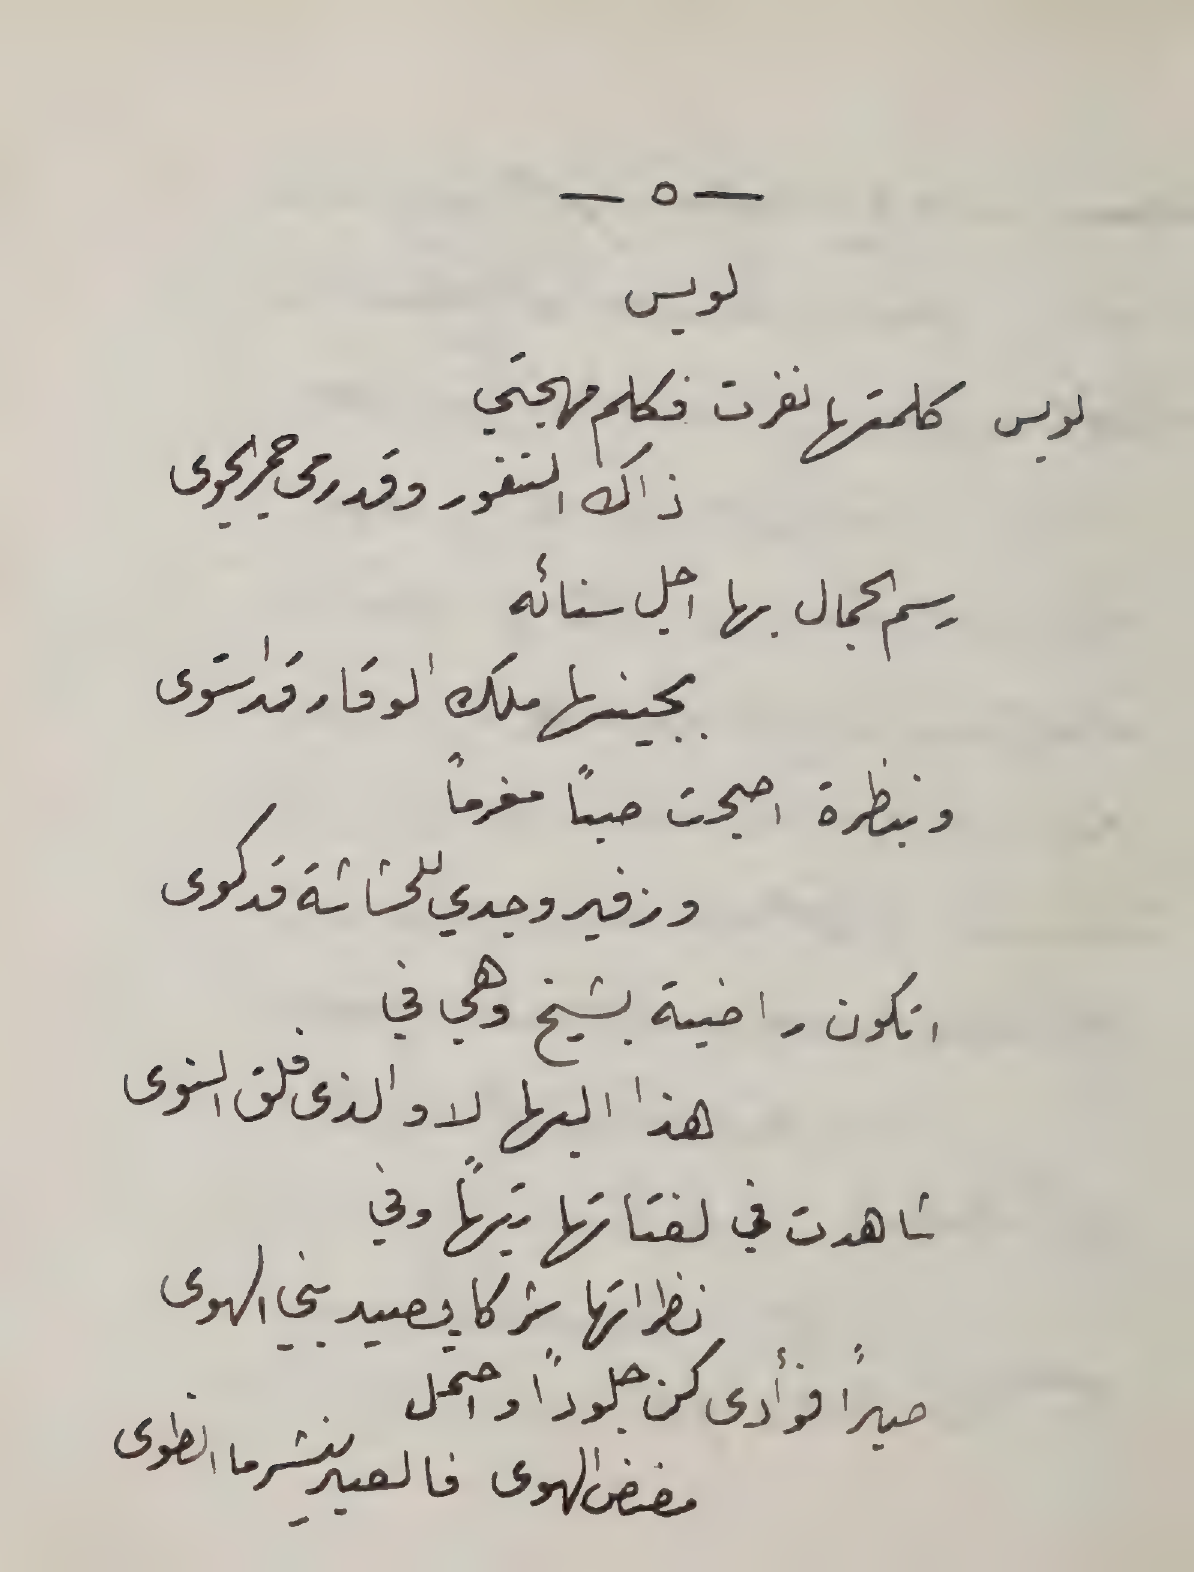 — ٥ —
لويس
لويس كلمتها نفرت فكلم مهجتي
ذاك النفور وقد رمى جمر الجوى
رسم الجمال بها اجل سنائه
بجبينها ملك الوقار قد استوى
وبنظرة اصبحت صبًا مغرمًا
وزفير وجدي للحشاشة قد كوى
اتكون راضية بشيخ وهي في
هذا البها لا والذى فلق النوى
شاهدت في لفتاتها تيهًا وفي
نظراتها شركا يصيد بني الهوى
صبرًا فؤأدى كن جلودًا واحتمل
مضض الهوى فالصبر ينشر ما انطوى